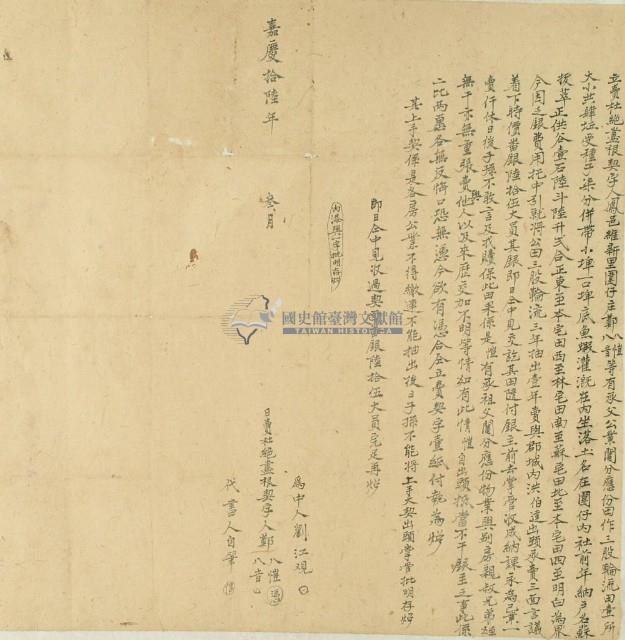 立賣杜絕盡根契字人鳳邑維新里圍仔庄鄭八愷八音等有承父公業鬮分應份田作三股輪流田壹所
大小共肆坵受種子柒分併帶小埤一口埤底魚蝦灌溉在內坐落土名在圍仔內社前年納戶名蘇
援萃正供谷壹石陸斗陸升弍合正東至本宅田西至林宅田南至蘇宅田北至本宅田四至明白為界
今因乏銀費用托中引就將公田三股輪流三年抽出壹年賣與郡城內洪伯達出頭承賣三面言議
着下時價番銀陸拾伍大員其銀即日仝中見交訖其田隨付銀主前去掌管收成納課永為己業一
賣仟休日後子孫不敢言及找贖保此田果係是愷有承祖父鬮分應份物業與別房親叔兄弟姪
無干亦無重張賣與他人以及來歷交加不明等情如有此情愷自出頭抵當不干銀主之事此係
二比兩愿各無反悔口恐無憑今欲有憑合仝立賣契字壹紙付執為炤
其上手契係是各房公業不得繳連不能抽出後日子孫不能將上手大契出頭掌管批明存炤
即日仝中見收過契銀陸拾伍大員完足再炤
內添與一字批明存炤
嘉慶拾陸年
叁月
日賣杜絕盡根契字人鄭八愷八音
為中人劉江觀
代書人自筆
國史館臺灣文獻館
TAIWAN HISTORICA